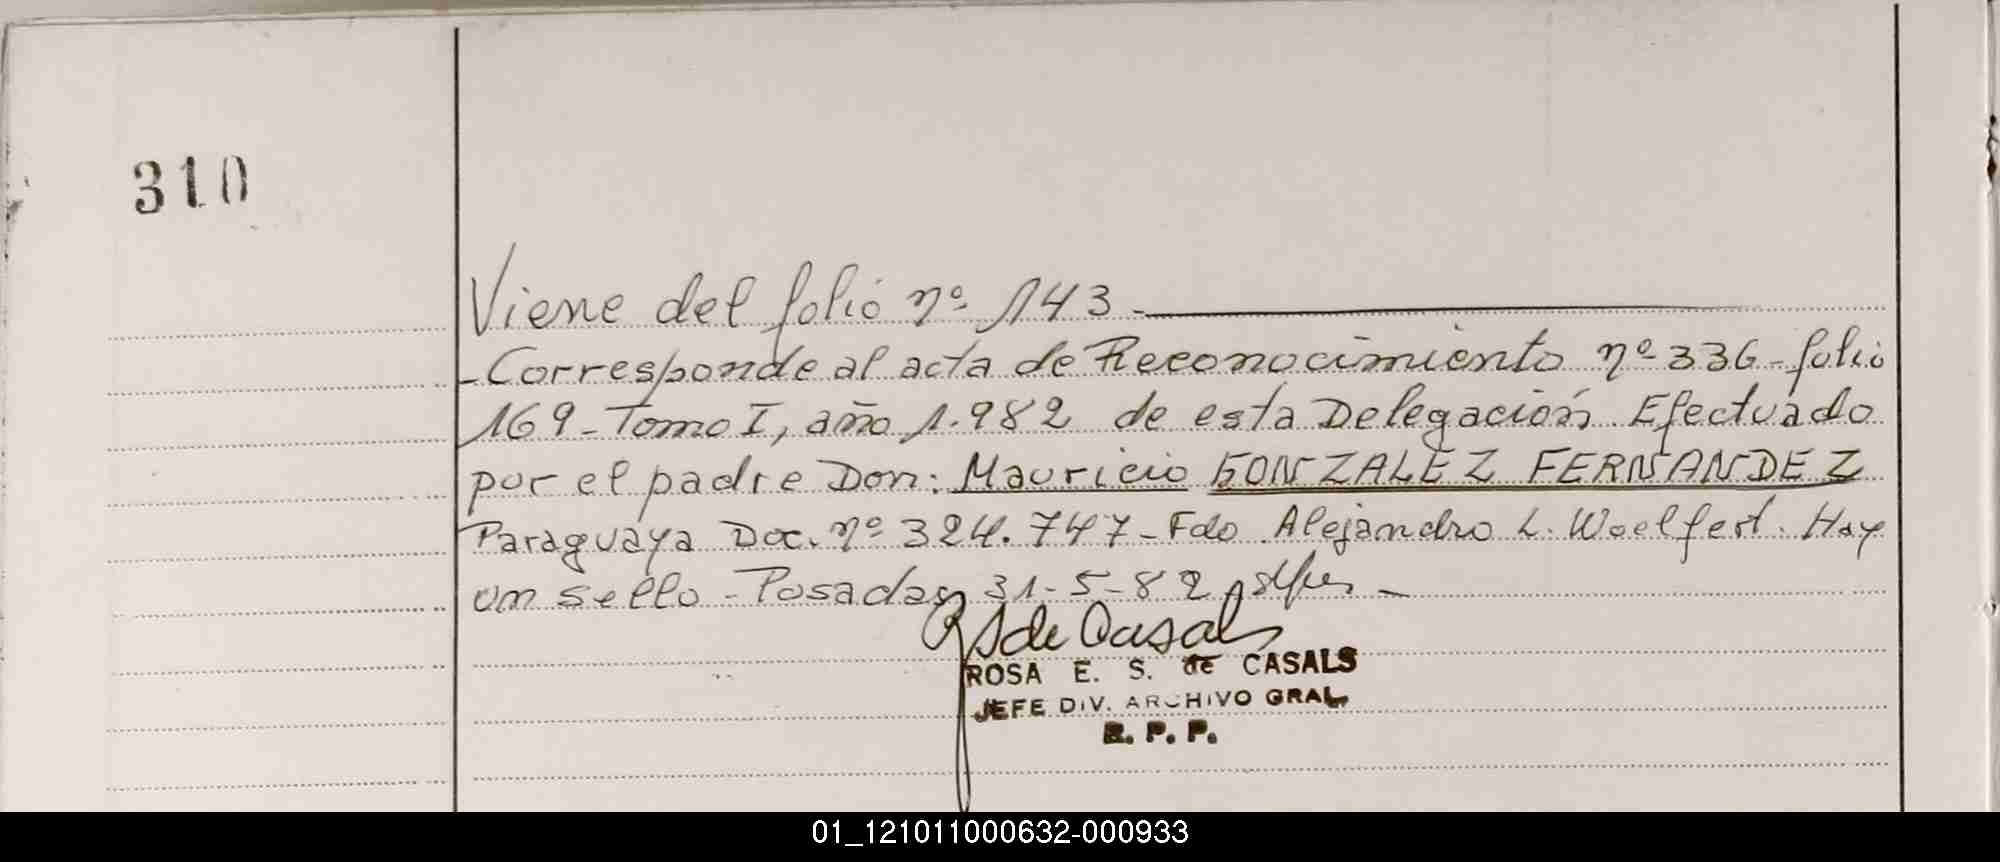 310
Viene del folio nº 143-
-Corresponde al acta de Reconocimiento nº 336-folio
169-Tomo I, año 1.982 de esta Delegación. Efectuado
por el padre Don: Mauricio GONZALEZ FERNANDEZ
Paraguaya Doc. nº 324.747-Fdo Alejandro L. Woelfert. Hay
un sello-Posadas 31-5-82
de Casals
ROSA E. S. de CASALS
JEFE DIV. ARCHIVO GRAL.
R. P. P.
01_121011000632-000933